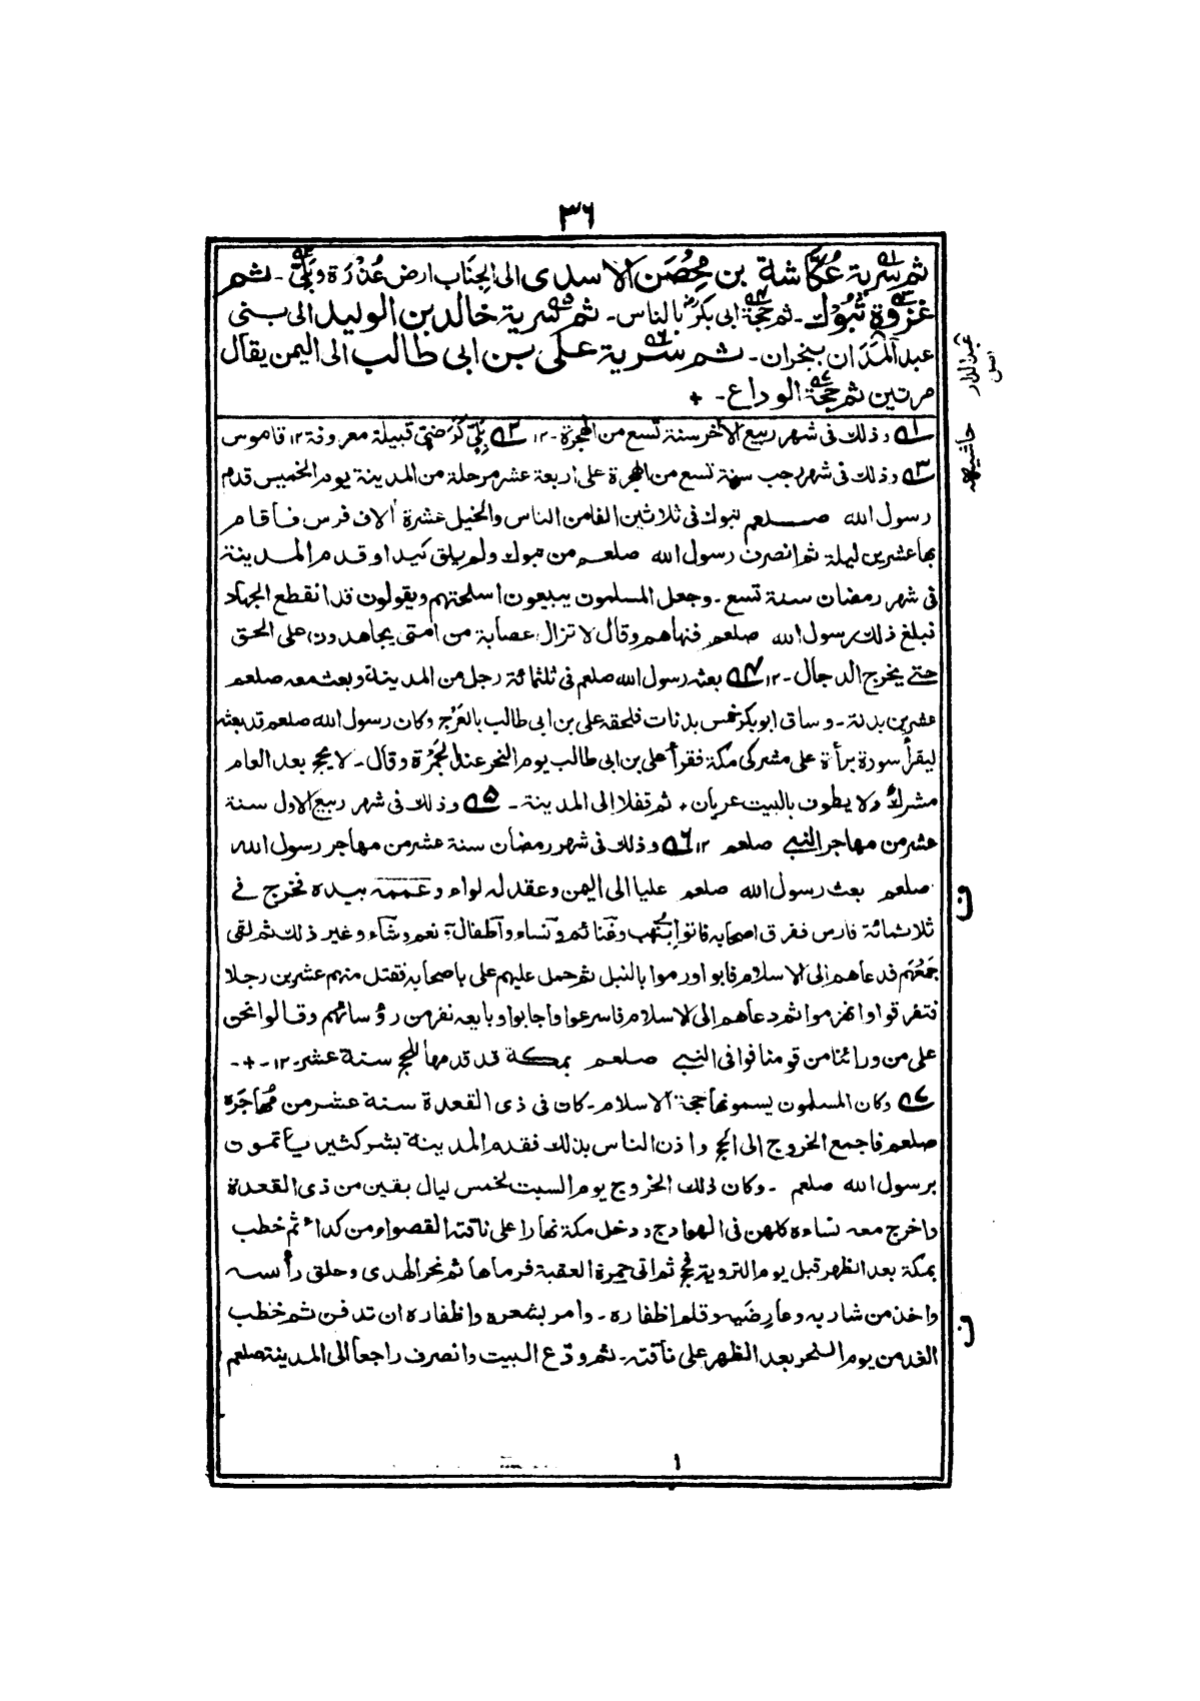 ٣٦
ثم سرية عُكّاشة بن مِحْصَن الاسدى الى الجِنَاب ارض عُذْرَة وبَلِيّ۔ ثم
غزوة تَبُوك۔ ثم حجة ابى بكر بالناس۔ ثم سرية خالد بن الوليد الى بنى
عبد المَدَان بنجران۔ ثم سرية على بن ابى طالب الى اليمن يقال
مرتين ثم حجة الوداع۔ +
عبد الدار
حاشيه
١ وذلك فى شهر ربيع الآخر سنة تسع من الهجرة۔ ١٢ ٢ بَلِيّ كرَضِيّ قبيلة معروفة ١٢ قاموس
٣ وذلك فى شهر رجب سنة تسع من الهجرة على اربعة عشر مرحلة من المدينة يوم الخميس قدم
رسول الله صلعم تبوك فى ثلاثين الفا من الناس والخيل عشرة آلاف فرس فأقام
بها عشرين ليلة ثم انصرف رسول الله صلعم من تبوك ولم يلق كيدا و قدم المدينة
فى شهر رمضان سنة تسع۔ وجعل المسلمون يبيعون اسلحتهم ويقولون قد انقطع الجهاد
فبلغ ذلك رسول الله صلعم فنهاهم وقال لا تزال عصابة من امتى يجاهدون على الحق
حتے يخرج الدجال۔ ١٢ ٤ بعثه رسول الله صلعم فى ثلثمائة رجل من المدينة وبعث معه صلعم
عشرين بدنة۔ وساق ابوبكر خمس بدنات فلحقه على بن ابى طالب بالعَرْج وكان رسول الله صلعم قد بعثه
ليقرأ سورة برأة على مشركى مكة فقرأ على بن ابى طالب يوم النحر عند الجمرة وقال۔ لا يحج بعد العام
مشرك ولا يطوف بالبيت عريان۔ ثم قفلا الى المدينة۔ ٥ وذلك فى شهر ربيع الاول سنة
عشر من مهاجر النبي صلعم ١٢ ٦ وذلك فى شهر رمضان سنة عشر من مهاجر رسول الله
صلعم بعث رسول الله صلعم عليا الى اليمن وعقد له لواء وعممه بيده فخرج فے
ثلاثمائة فارس ففرق اصحابه فاتوا بنهب وغنائم ونساء واطفال نعم وشاء وغير ذلك ثم لقى
جَمْعَهم فدعاهم الى الاسلام فابوا ورموا بالنبل ثم حمل عليهم على باصحابه فقتل منهم عشرين رجلا
فتفرقوا وانهزموا ثم دعاهم الى الاسلام فاسرعوا واجابوا وبايعه نفر من رؤسائهم وقالوا نحن
على من ورائنا من قومنا فوافى النبي صلعم بمكة قد قدمها للحج سنة عشر۔ ١٢۔ +۔
٧ وكان المسلمون يسمونها حجة الاسلام۔ كان فى ذى القعدة سنة عشر من مُهاجَرة
صلعم فاجمع الخروج الى الحج واذن الناس بذلك فقدم المدينة بشر كثير يأتمون
برسول الله صلعم ۔ وكان ذلك الخروج يوم السبت لخمس ليال بقين من ذى القعدة
واخرج معه نساءه كلهن فى الهوادج ودخل مكة نهارا على ناقته القصواء من كداء ثم خطب
بمكة بعد الظهر قبل يوم التروية ثم اتى جمرة العقبة فرماها ثم نحر الهدى وحلق رأسه
واخذ من شاربه وعارضيه وقلم اظفاره۔ وامر بشعره واظفاره ان تدفن ثم خطب
الغد من يوم النحر بعد الظهر على ناقته۔ ثم ودّع البيت وانصرف راجعا الى المدينة صلعم
ن
ن
١